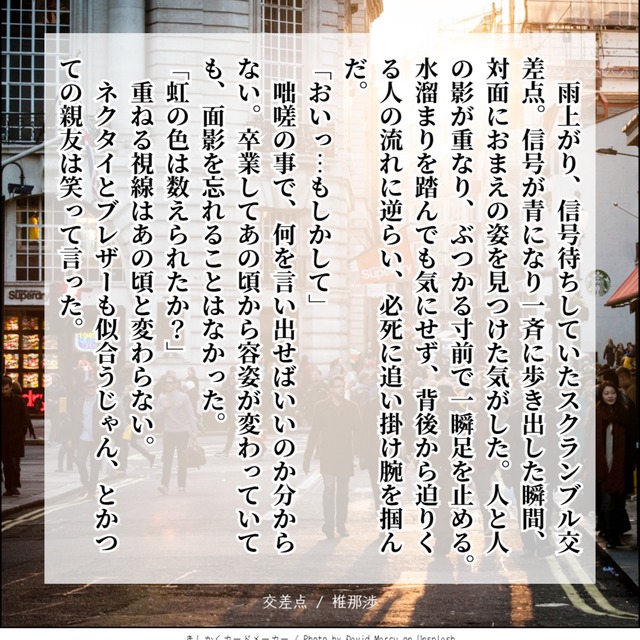 雨上がり、信号待ちしていたスクランブル交
差点。信号が青になり一斉に歩き出した瞬間、
対面におまえの姿を見つけた気がした。人と人
の影が重なり、ぶつかる寸前で一瞬足を止める。
水溜まりを踏んでも気にせず、背後から迫りく
る人の流れに逆らい、必死に追い掛け腕を掴ん
だ。
「おいっ…もしかして」
咄嗟の事で、何を言い出せばいいのか分から
ない。卒業してあの頃から容姿が変わっていて
も、面影を忘れることはなかった。
「虹の色は数えられたか？」
重ねる視線はあの頃と変わらない。
ネクタイとブレザーも似合うじゃん、とかつ
ての親友は笑って言った。
Superdr
交差点 / 椎那渉